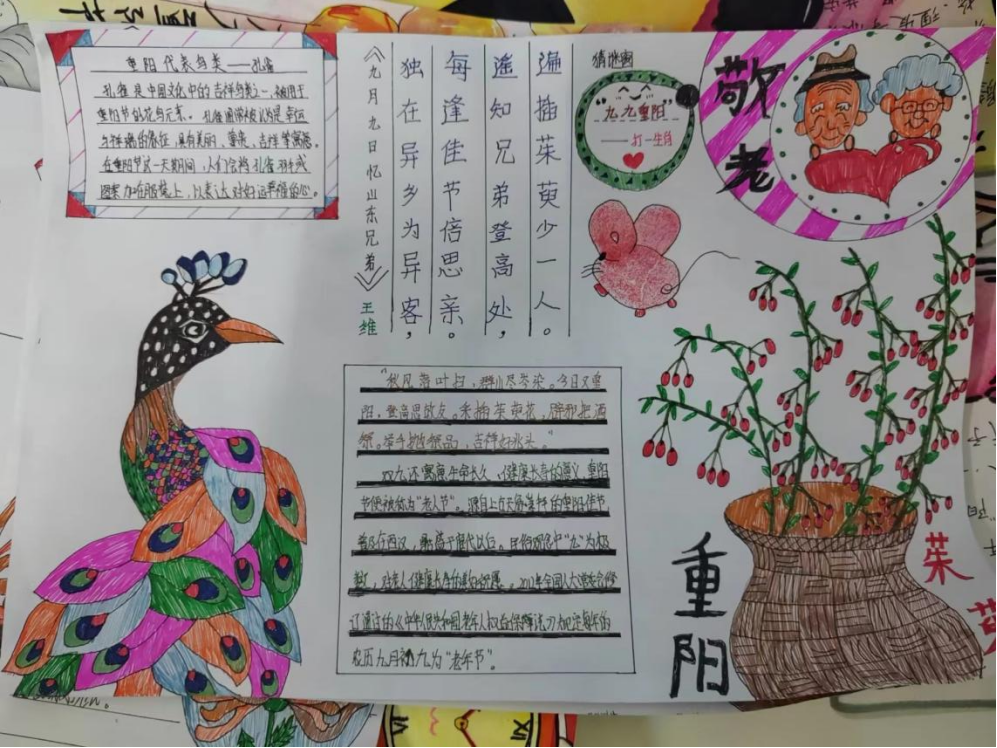 重阳代表鸟类——孔雀
孔雀是中国文化中的吉祥鸟类之一,被用于
重阳节的花鸟元素。孔雀通常被认为是幸运
与祥瑞的象征,具有美丽、吉祥等寓意
在重阳节这一天期间,人们会将孔雀羽毛或
图案加在服装上,以表达对好运幸福的心。
《九月九日忆山东兄弟》
王维
独在异乡为异客,
每逢佳节倍思亲。
遥知兄弟登高处,
遍插茱萸少一人。
猜谜
"九九重阳"
——打一生肖
敬老
"秋风落叶扫,群山尽今日又重
阳,登高思故友。采插茱萸花,把酒
吉祥好兆头。"
双九还寓意生命长久、健康长寿的意义,重阳
节便被称为"老人节"。
普及在西汉,
数,对老人健康长寿的美好祝愿。2012年全国人大常委会修
订通过的《中华人民共和国老年人权益保障法》规定每年的
农历九月初九为"老年节"。
重阳
茱萸